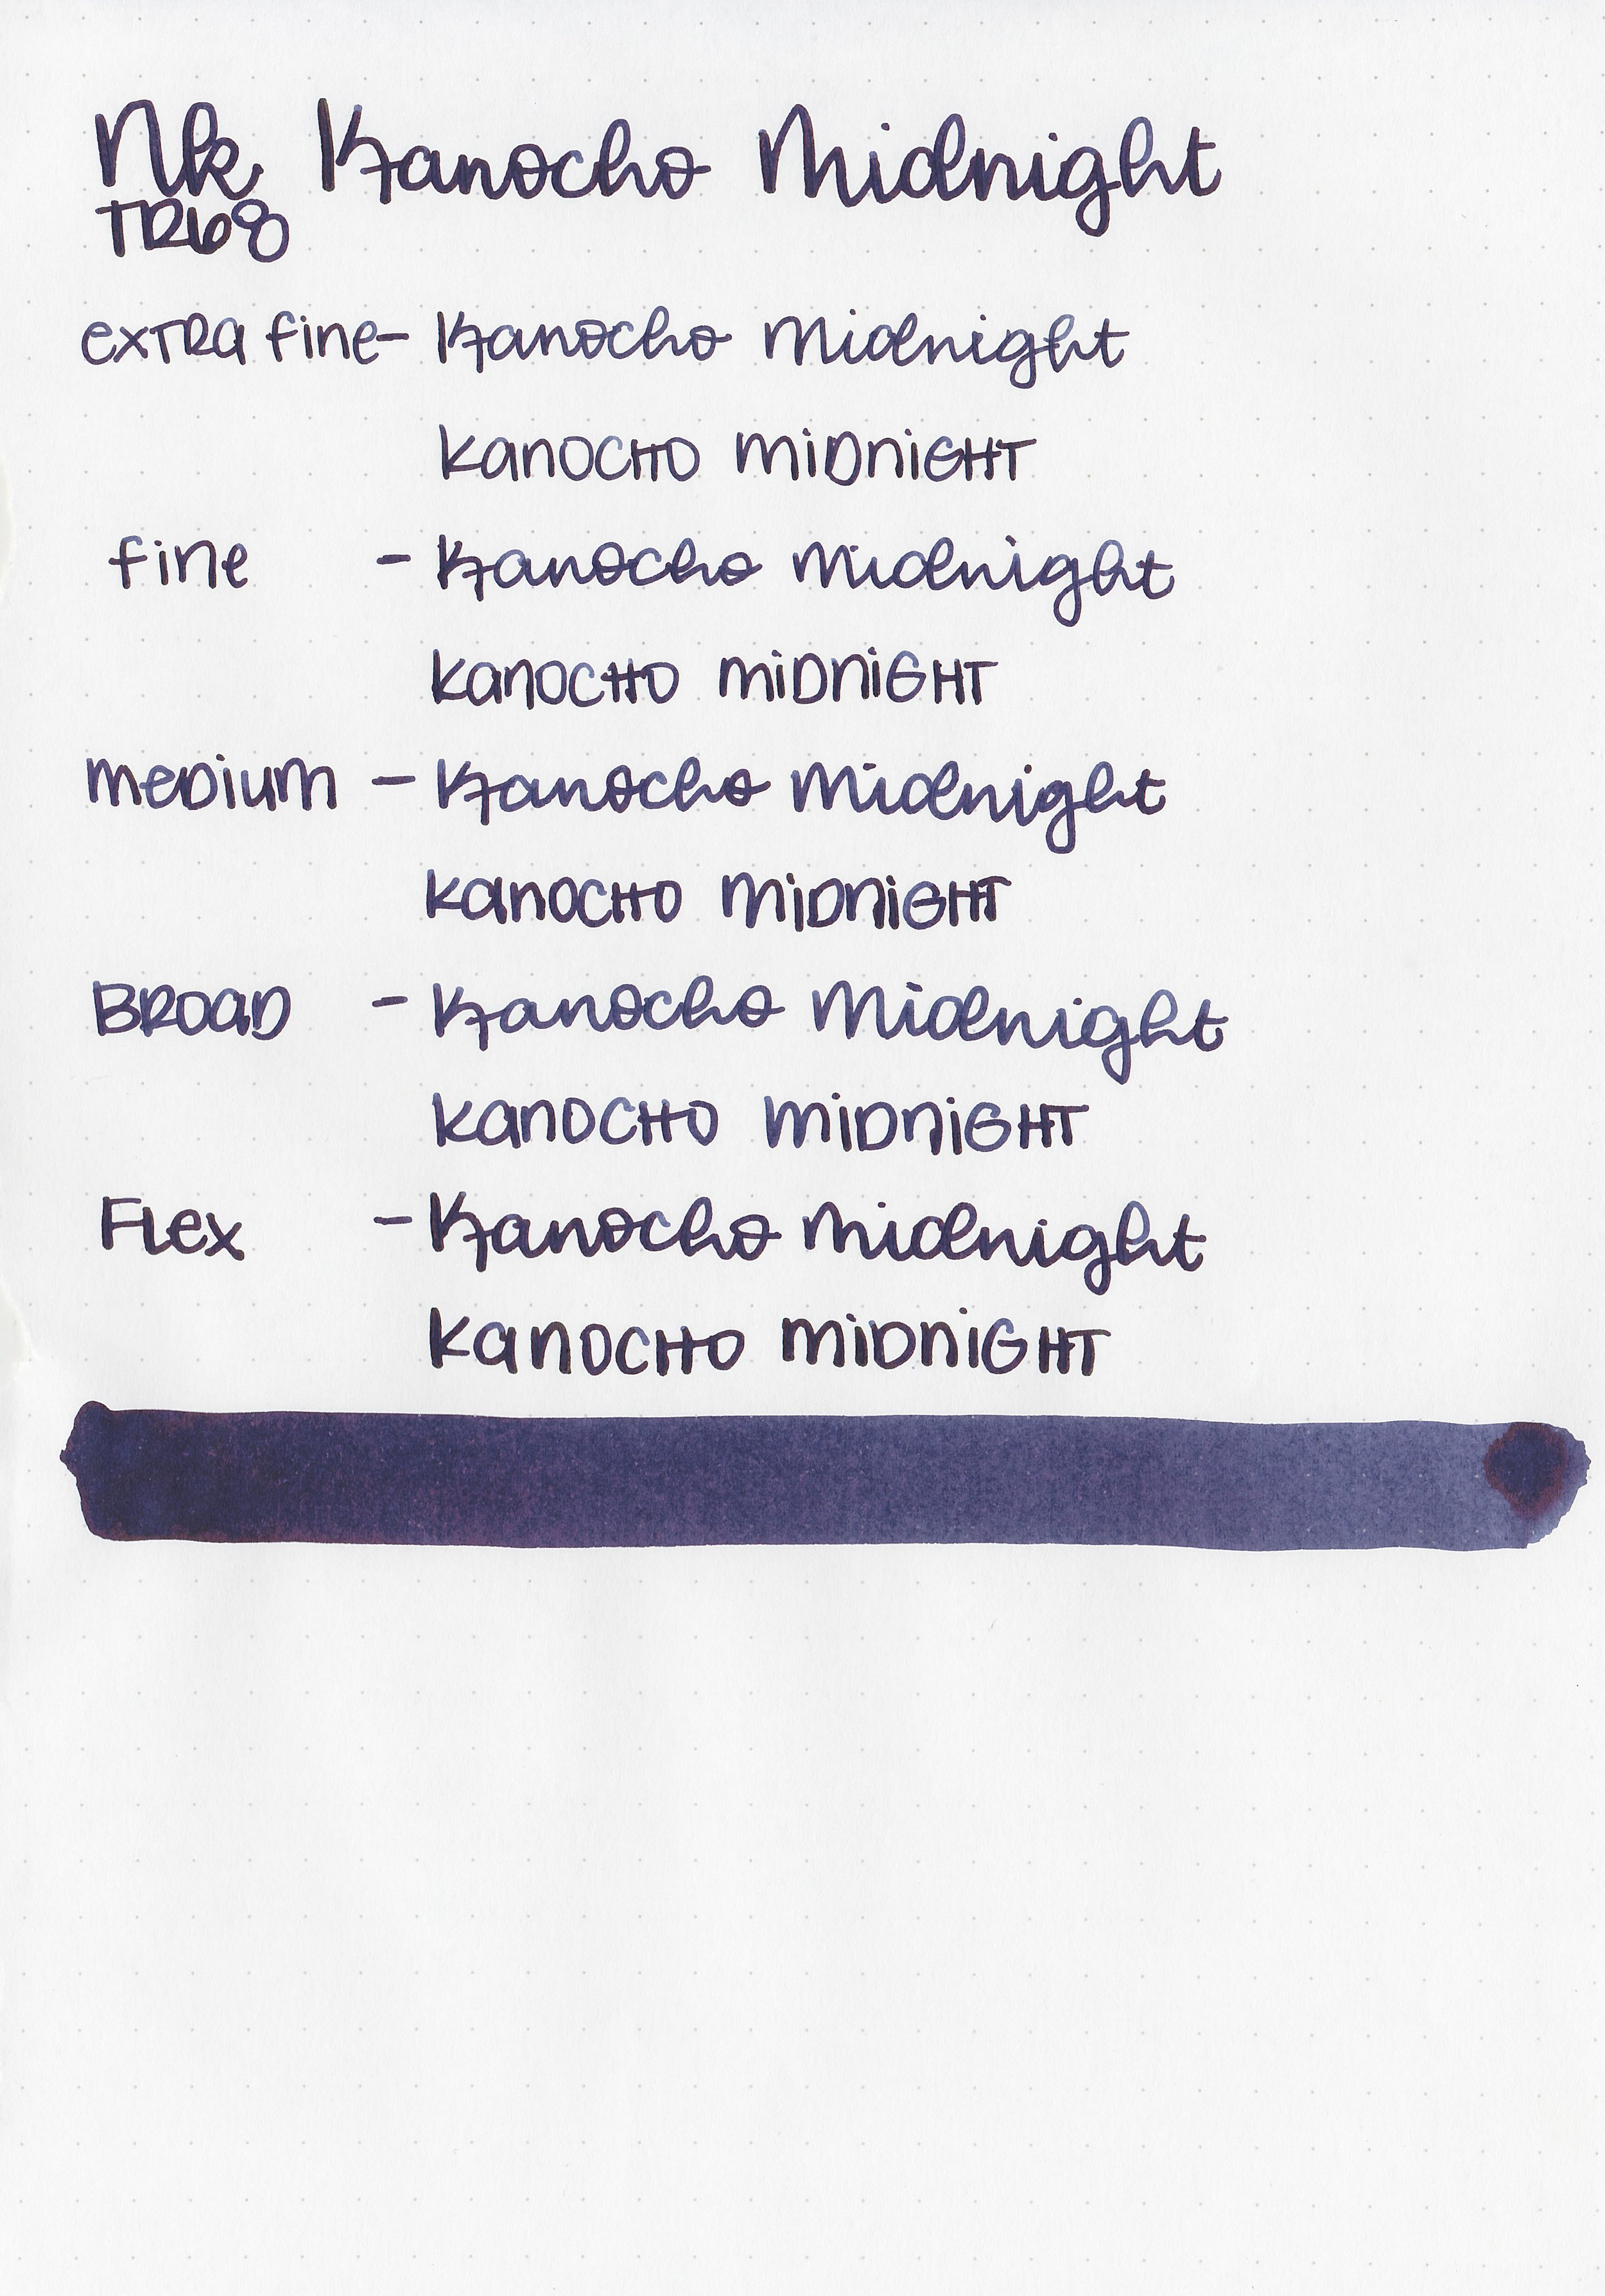 Nk Kanocho Midnight
TR68
extra fine- Kanocho Midnight
Kanocho Midnight
fine - Kanocho Midnight
Kanocho Midnight
medium - Kanocho Midnight
Kanocho Midnight
Broad - Kanocho Midnight
Kanocho Midnight
Flex - Kanocho Midnight
Kanocho Midnight